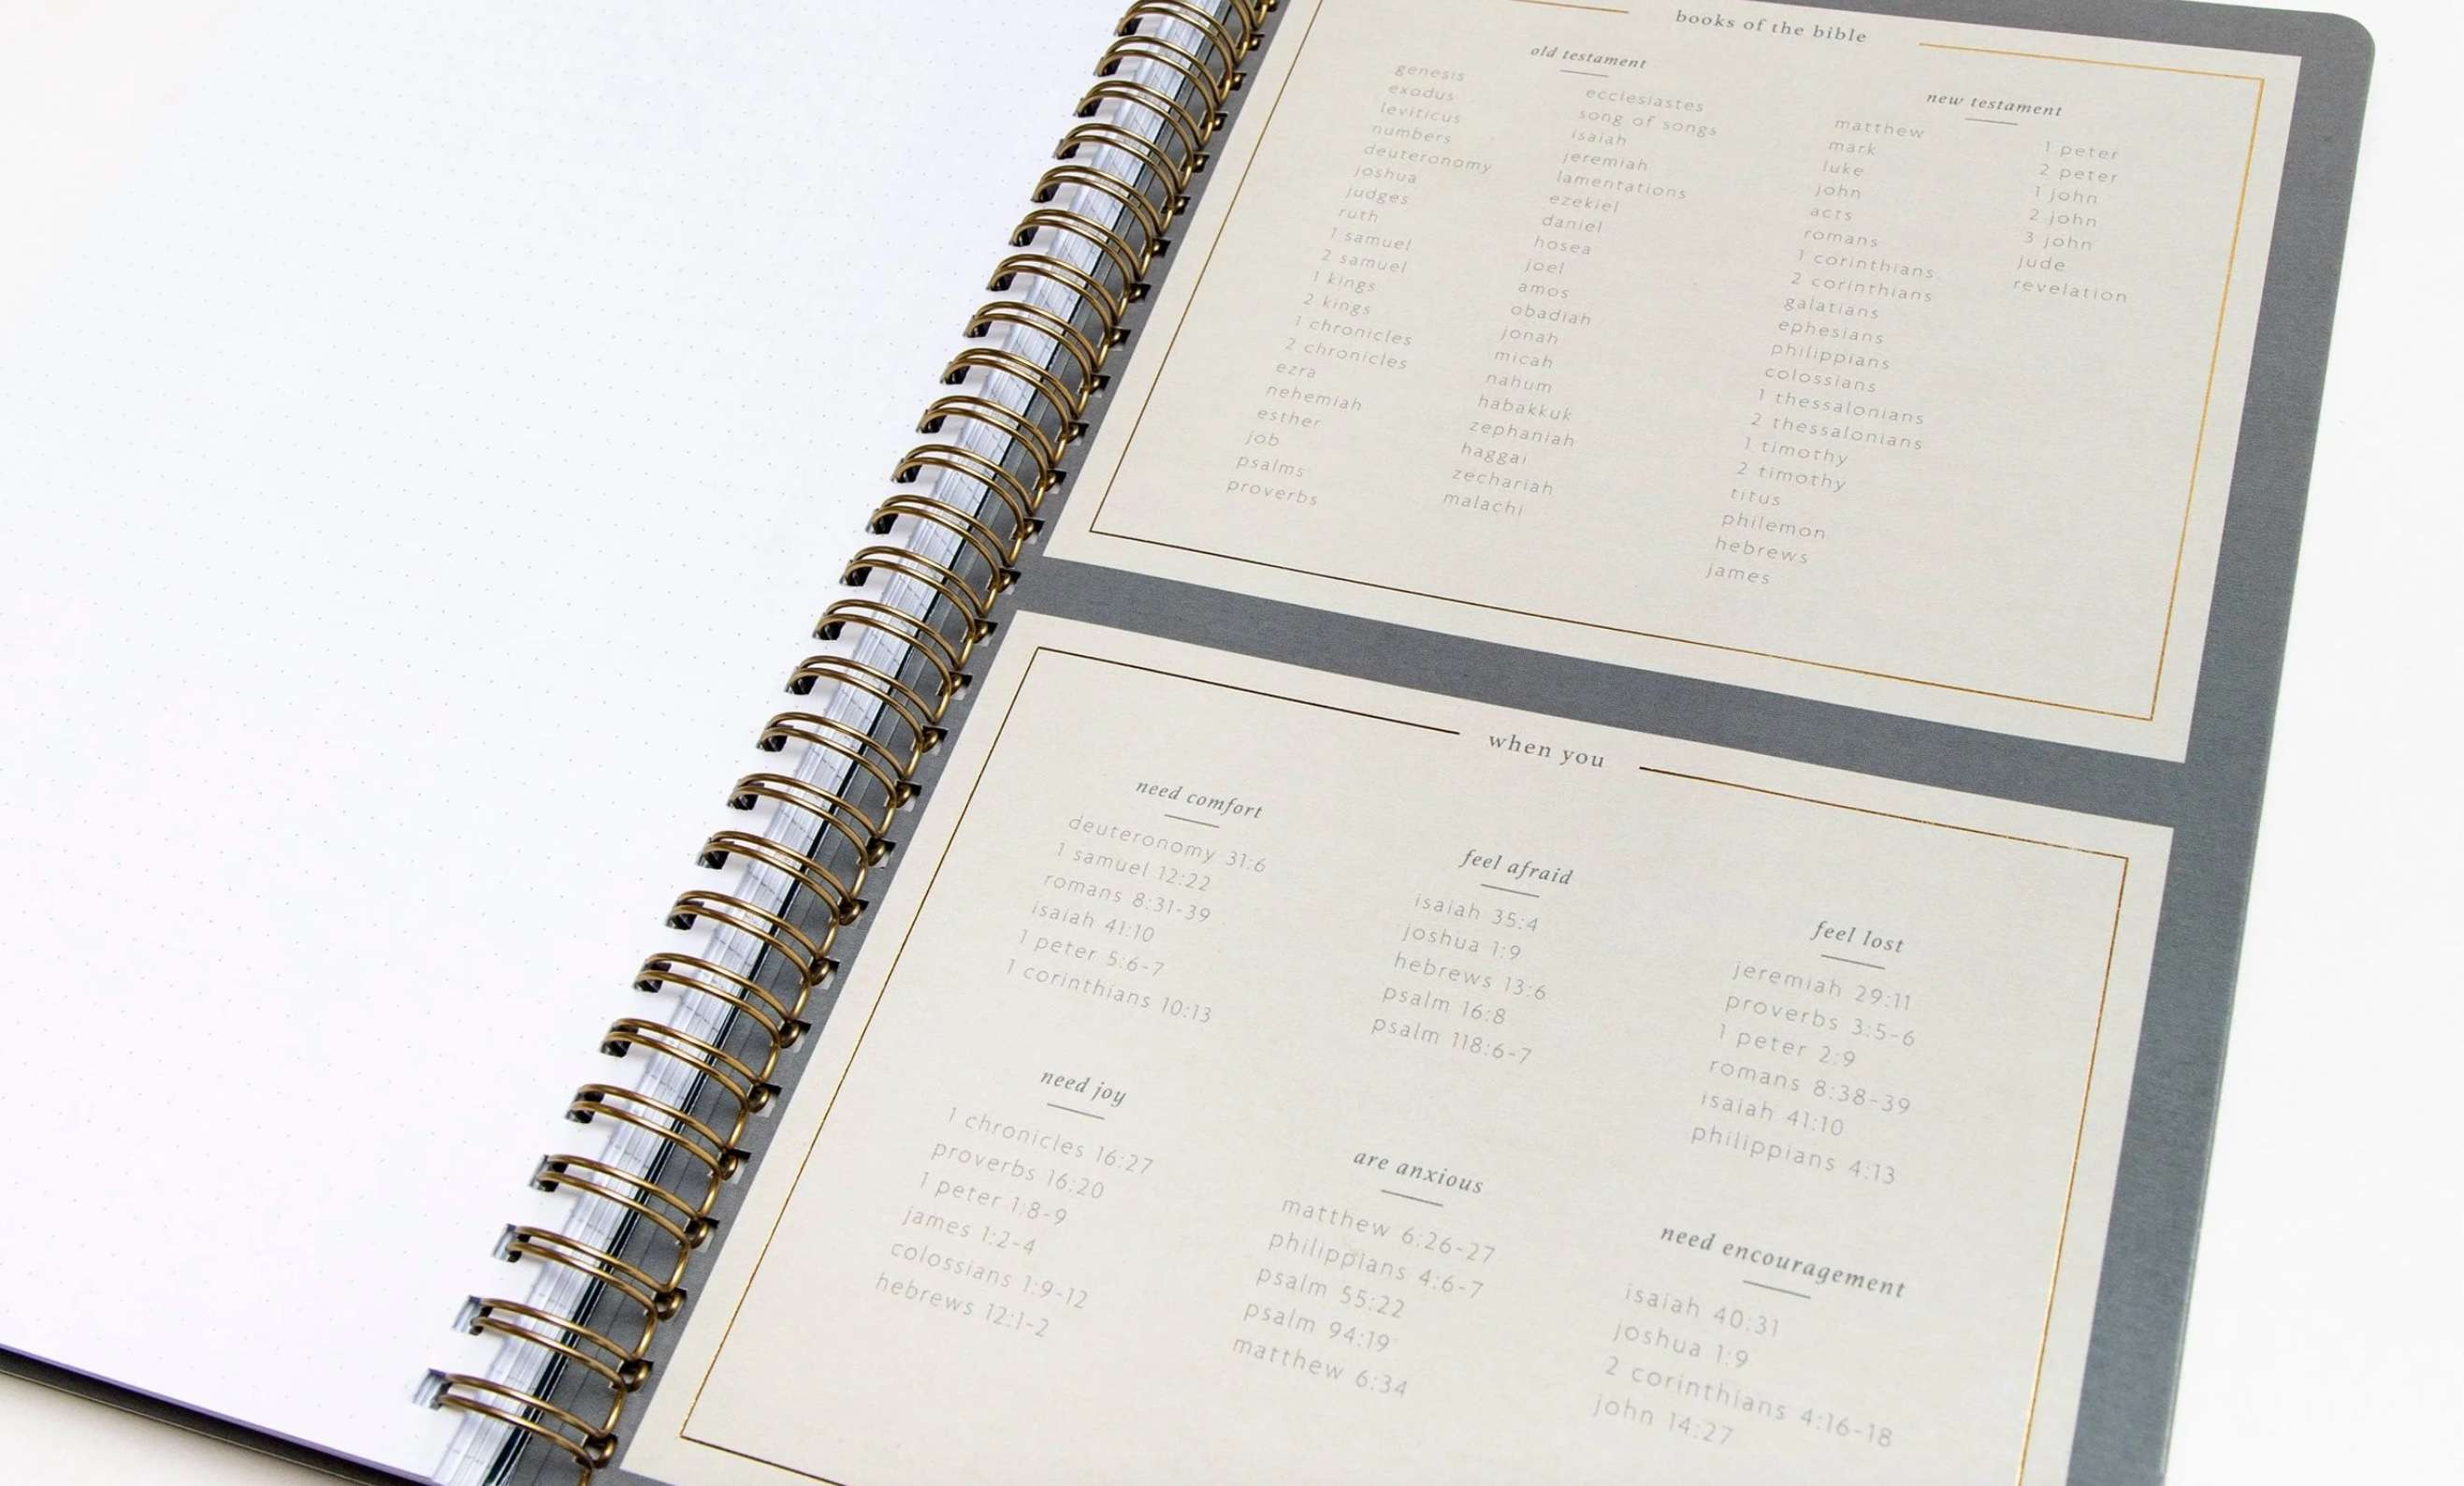 books of the bible
old testament
genesis
exodus
leviticus
numbers
deuteronomy
joshua
judges
ruth
1 samuel
2 samuel
1 kings
2 kings
1 chronicles
2 chronicles
ezra
nehemiah
esther
job
psalms
proverbs
ecclesiastes
song of songs
isaiah
jeremiah
lamentations
ezekiel
daniel
hosea
joel
amos
obadiah
jonah
micah
nahum
habakkuk
zephaniah
haggai
zechariah
malachi
new testament
matthew
mark
luke
john
acts
romans
1 corinthians
2 corinthians
galatians
ephesians
philippians
colossians
1 thessalonians
2 thessalonians
1 timothy
2 timothy
titus
philemon
hebrews
james
1 peter
2 peter
1 john
2 john
3 john
jude
revelation
when you
need comfort
deuteronomy 31:6
1 samuel 12:22
romans 8:31-39
isaiah 41:10
1 peter 5:6-7
1 corinthians 10:13
feel afraid
isaiah 35:4
joshua 1:9
hebrews 13:6
psalm 16:8
psalm 118:6-7
feel lost
jeremiah 29:11
proverbs 3:5-6
1 peter 2:9
romans 8:38-39
isaiah 41:10
philippians 4:13
need joy
1 chronicles 16:27
proverbs 16:20
1 peter 1:8-9
james 1:2-4
colossians 1:9-12
hebrews 12:1-2
are anxious
matthew 6:26-27
philippians 4:6-7
psalm 55:22
psalm 94:19
matthew 6:34
need encouragement
isaiah 40:31
joshua 1:9
2 corinthians 4:16-18
john 14:27